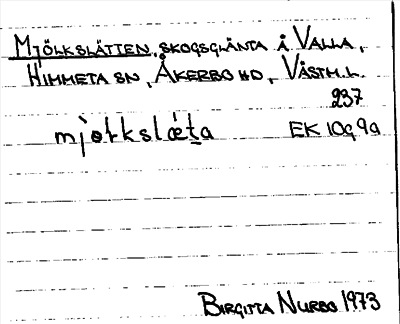 MJÖLKSLÄTTEN, SKOGSGLÄNTA Å VALLA,
HIMMETA SN, ÅKERBO HD, VÄSTM.L.
237
mjøɫkslæ̀ta EK 10g 9a
BIRGITTA NURBO 1973